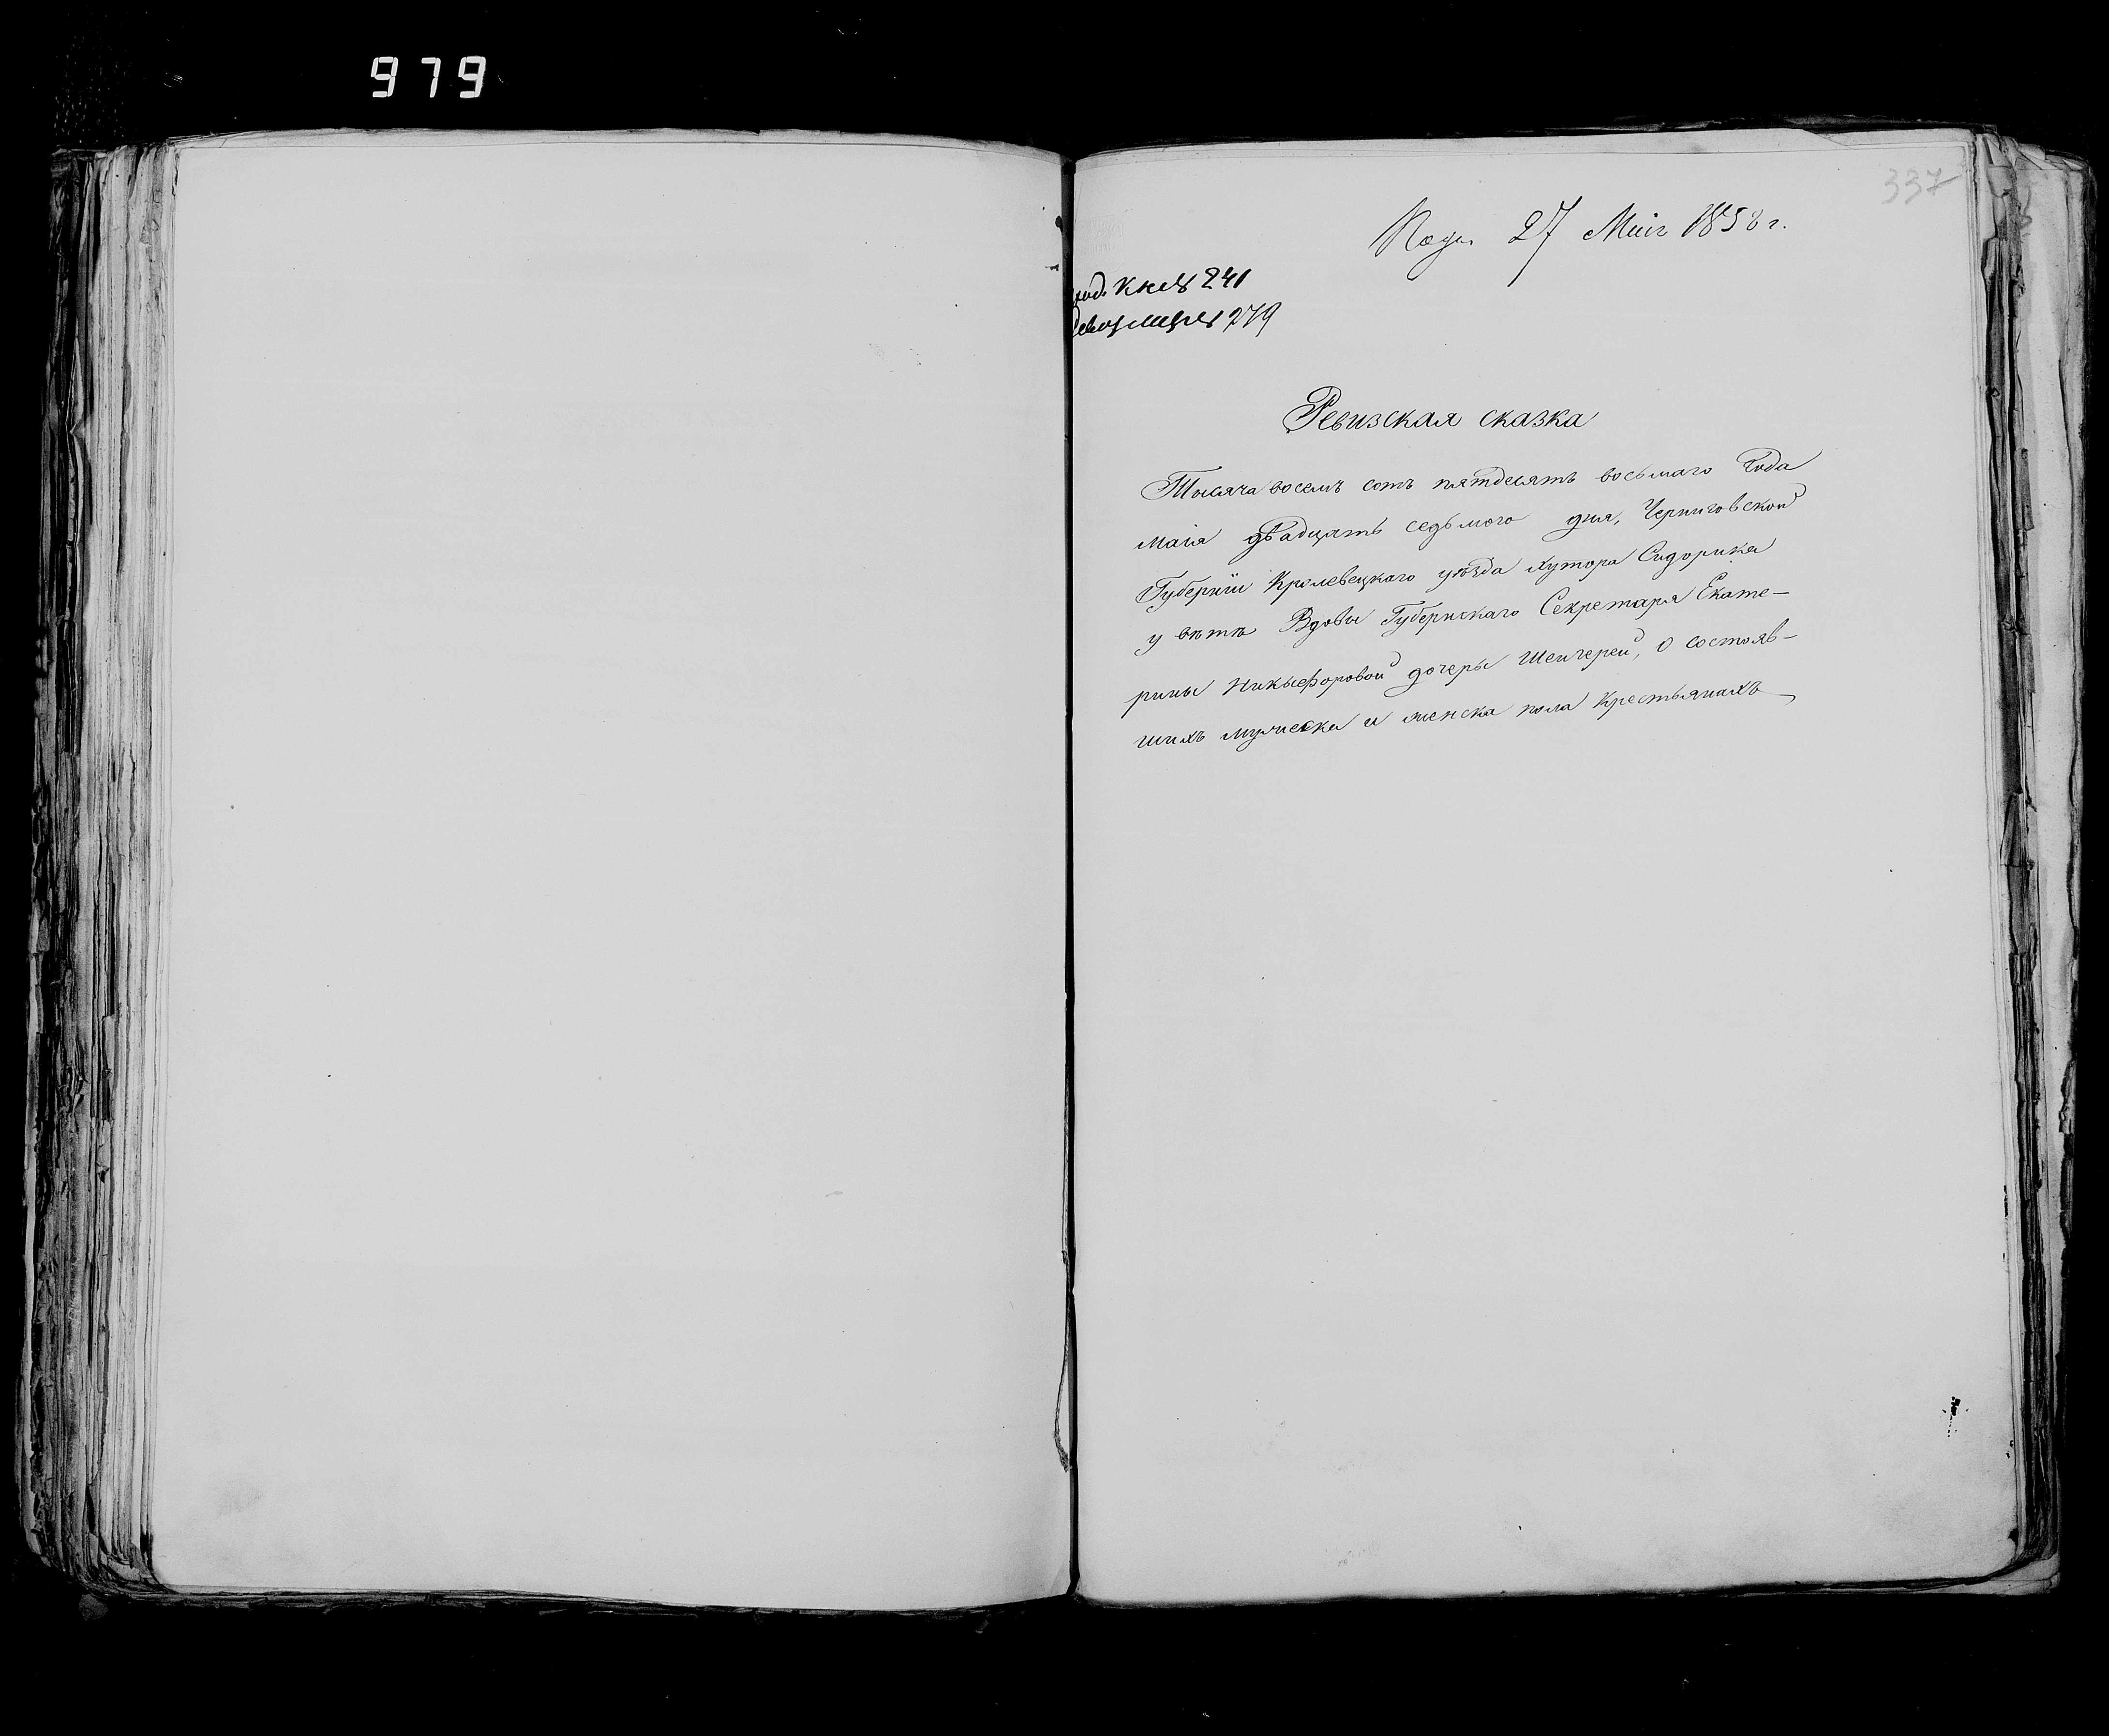 979
337
27 Маія 1858 г.
241
279
Ревизская сказка
Тысяча восемъ сотъ пятдесятъ восьмаго Года
маія двадцать седьмого дня, Черниговской
Губерніи Кролевецкаго уѣзда Хутора Сидорика
у вѣтѣ Вдовы Губернскаго Секретаря Екате-
рины Никыефоровой дочеры Шенгерей, о состояв-
шихъ мужеска и женска пола Крестьянахъ